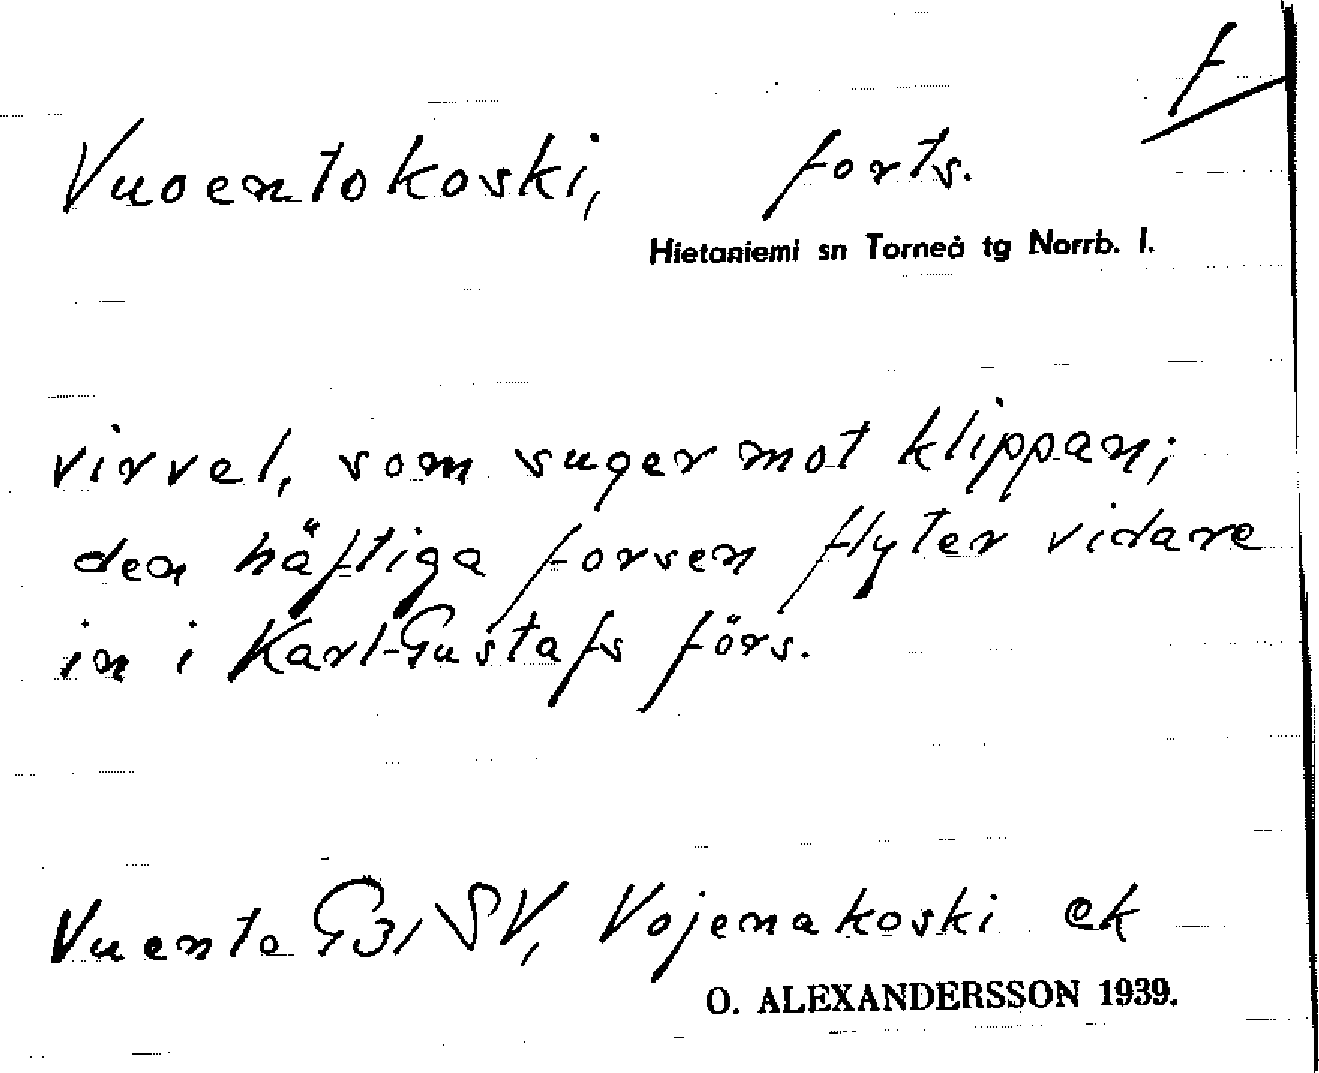 f
Vuoentokoski, forts.
Hietaniemi sn Torneå tg Norrb. l.
virvel, som suger mot klippan;
den häftiga forsen flyter vidare
in i Karl-Gustafs förs.
Vuento G31 SV, Vojenakoski ek
O. ALEXANDERSSON 1939.